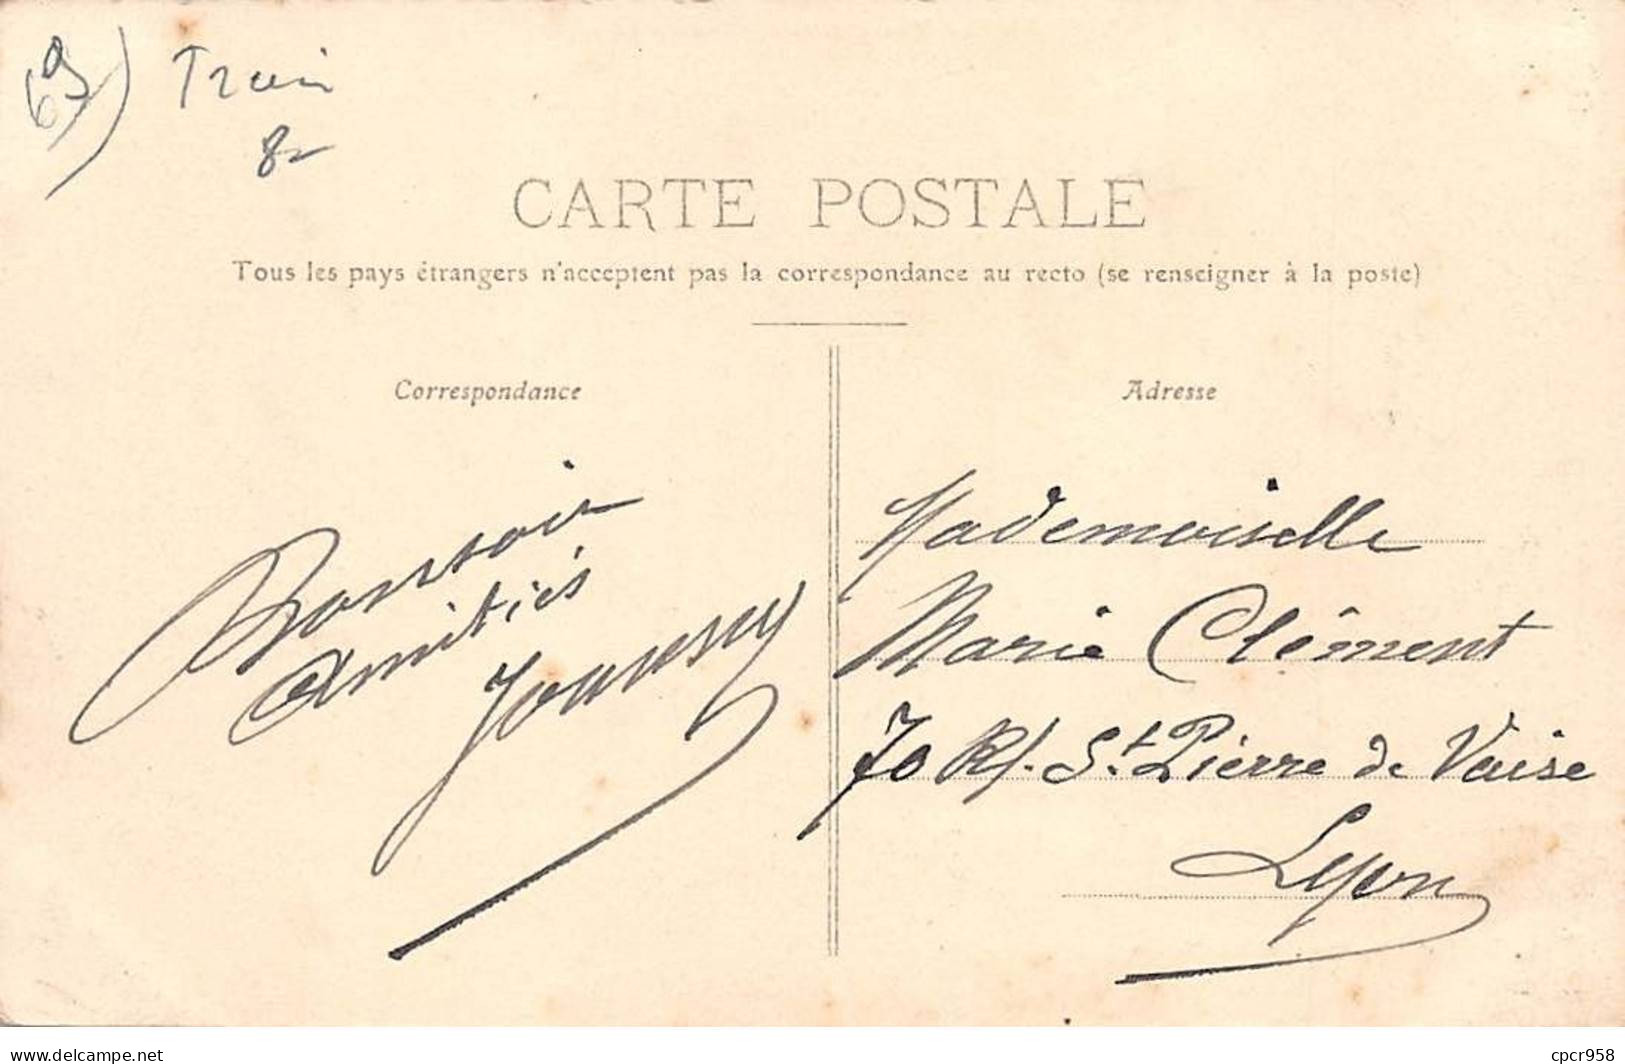 69) Train
8
CARTE POSTALE
Tous les pays étrangers n'acceptent pas la correspondance au recto (se renseigner à la poste)
Correspondance
Adresse
Bonsoir
Amitiés
Mademoiselle
Marie Clément
70 R. St. Pierre de Vaise
Lyon
www.delcampe.net
cpcr958